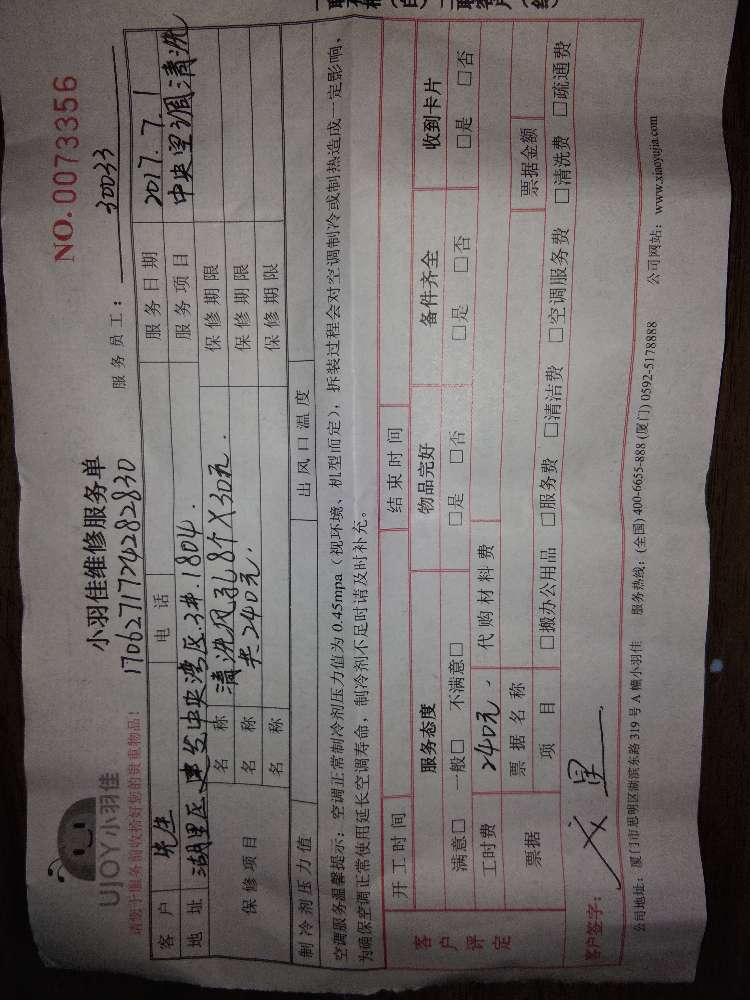 UJOY小羽佳
小羽佳维修服务单
NO.0073356
请您于服务前收拾好您的贵重物品!
1706271724282830
服务员工: 30033
客户 先生 电话 服务日期 2017.7.1
地址 湖里区建发中央湾区.3#.1804. 服务项目 中央空调清洗
保修项目 名称 清洗风孔8个X30元. 保修期限
名称 共240元. 保修期限
名称 保修期限
制冷剂压力值 出风口温度
空调服务温馨提示:空调正常制冷剂压力值为0.45mpa(视环境、机型而定),拆装过程会对空调制冷或制热造成一定影响,
为确保空调正常使用延长空调寿命,制冷剂不足时请及时补充。
开工时间 结束时间
客户评定 服务态度 物品完好 备件齐全 收到卡片
满意□ 一般□ 不满意□ □是 □否 □是 □否 □是 □否
工时费 240元. 代购材料费
票据 票据名称 票据金额
项目 □搬办公用品 □服务费 □清洁费 □空调服务费 □清洗费 □疏通费
客户签字:
公司地址:厦门市思明区湖滨东路319号A幢小羽佳 服务热线:(全国)400-6655-888(厦门)0592-5178888 公司网站:www.xiaoyujia.com